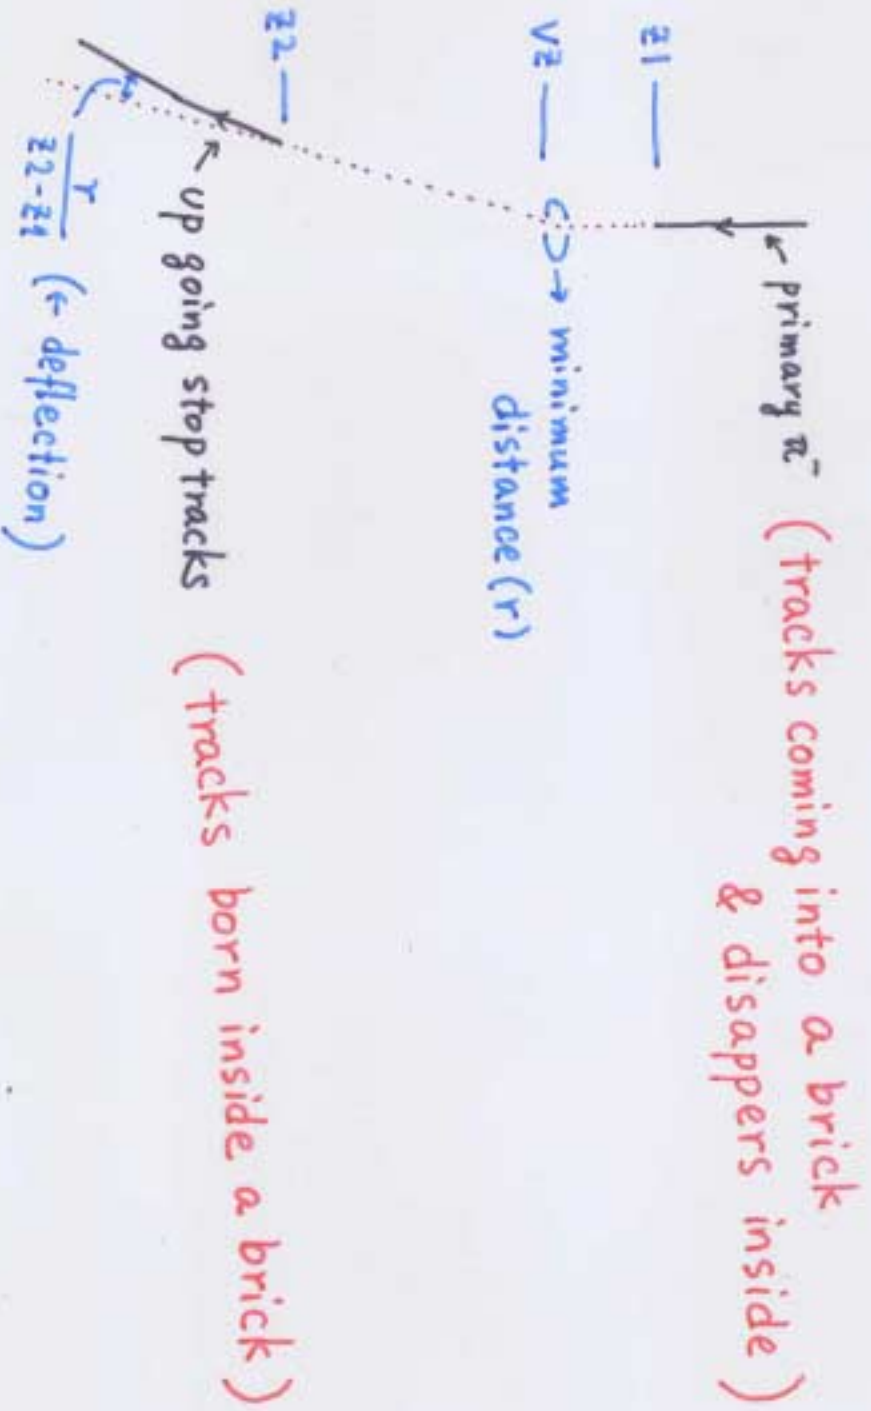 primary π⁻ (tracks coming into a brick
& disappers inside)
z1
vz → minimum
distance (r)
z2
up going stop tracks (tracks born inside a brick)
r
z2-z1 (← deflection)